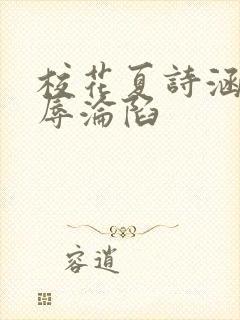 校花夏詩涵
辱淪陷
容逍